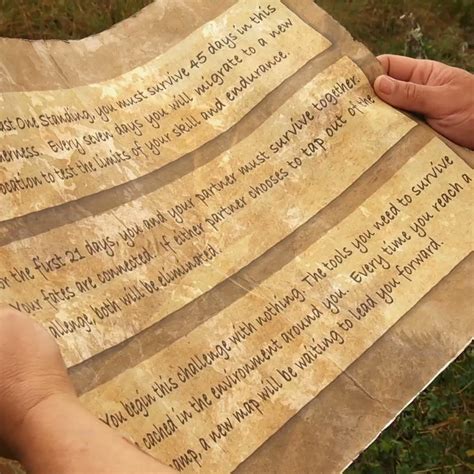 ast One Standing, you must survive 45 days in this
erness. Every seven days you will migrate to a new
ocation to test the limits of your skill and endurance.
or the first 21 days, you and your partner must survive together.
Your fates are connected. If either partner chooses to tap out of the
allenge, both will be eliminated.
You begin this challenge with nothing. The tools you need to survive
e cached in the environment around you. Every time you reach a
amp, a new map will be waiting to lead you forward.